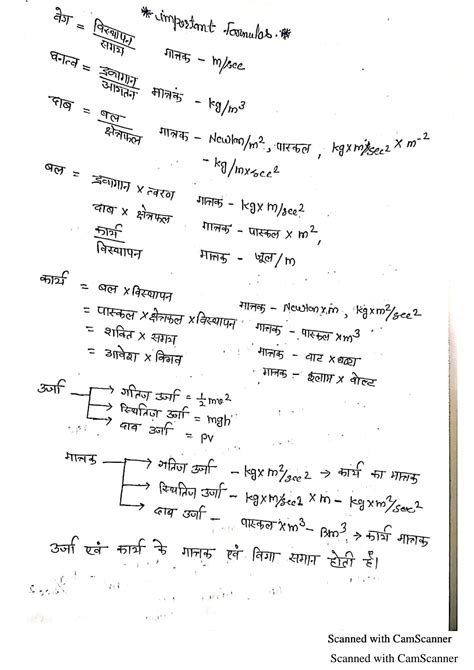 * important formulas. *
वेग = विस्थापन / समय मात्रक - m/sec
घनत्व = द्रव्यमान / आयतन मात्रक - kg/m³
दाब = बल / क्षेत्रफल मात्रक - Newton/m², पास्कल, kg×m/sec² × m⁻²
- kg/m×sec²
बल = द्रव्यमान × त्वरण मात्रक - kg×m/sec²
दाब × क्षेत्रफल मात्रक - पास्कल × m²,
कार्य / विस्थापन मात्रक - जूल/m
कार्य = बल × विस्थापन मात्रक - Newton×m, kg×m²/sec²
= पास्कल × क्षेत्रफल × विस्थापन मात्रक - पास्कल × m³
= शक्ति × समय मात्रक - वाट × घण्टा
= आवेश × विभव मात्रक - × वोल्ट
उर्जा → गतिज उर्जा = ½mv²
→ स्थितिज उर्जा = mgh
→ दाब उर्जा = PV
मात्रक → गतिज उर्जा - kg×m²/sec² → कार्य का मात्रक
→ स्थितिज उर्जा - kg×m/sec² × m - kg×m²/sec²
→ दाब उर्जा - पास्कल×m³ - → कार्य मात्रक
उर्जा एवं कार्य के मात्रक एवं विमा समान होती है।
Scanned with CamScanner
Scanned with CamScanner